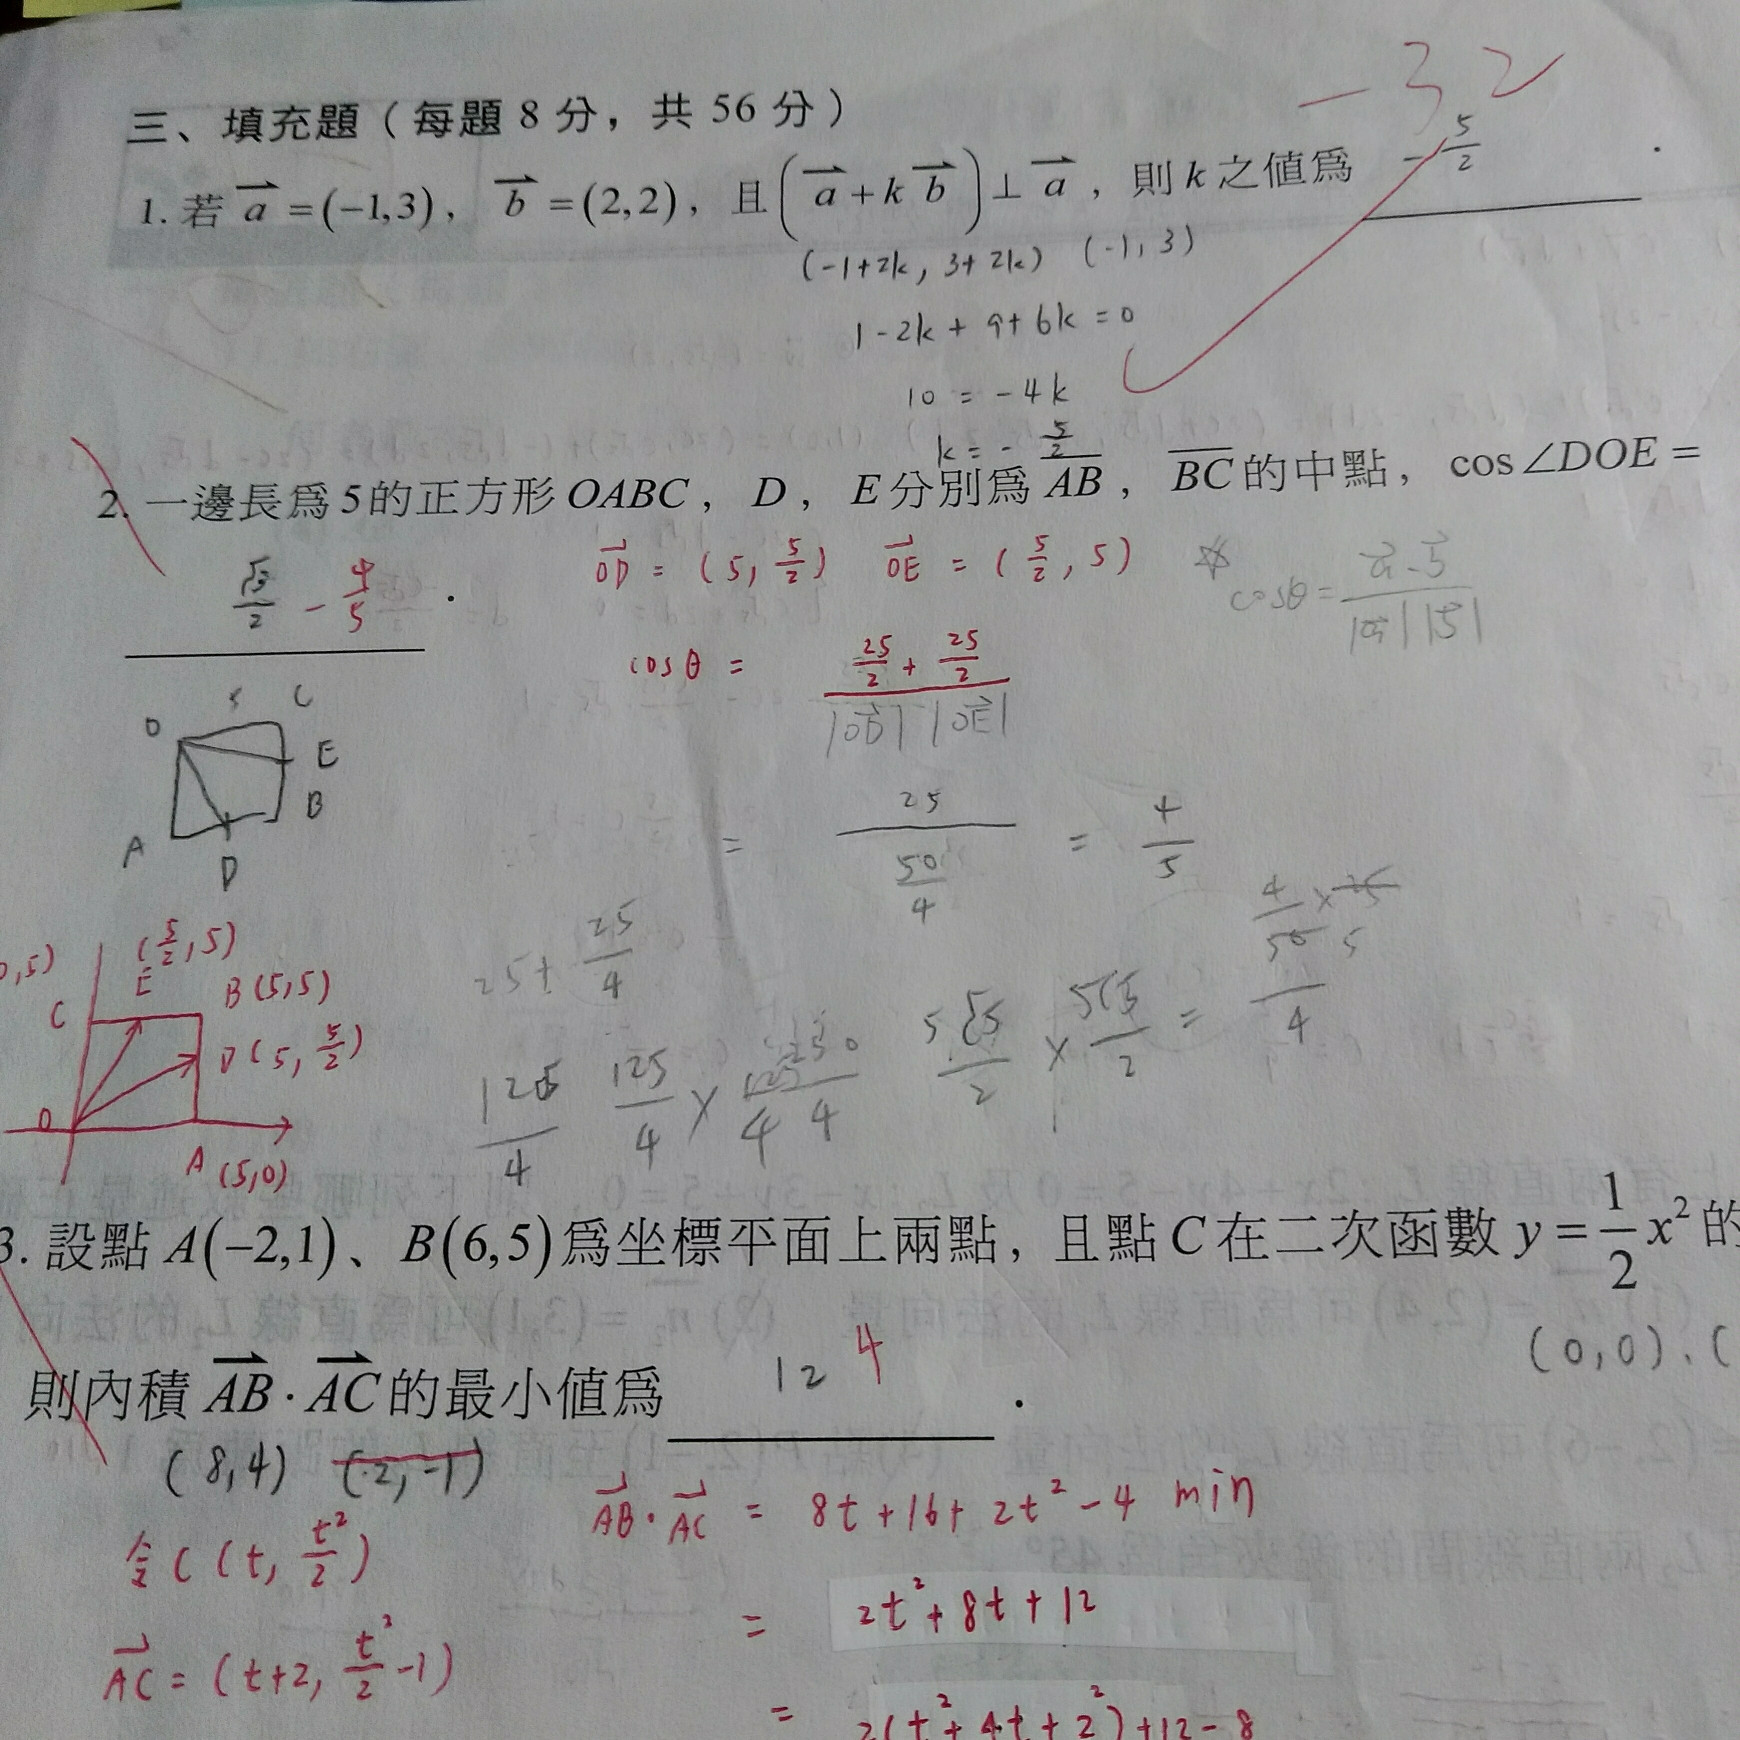 -32
三、填充題（每題 8 分，共 56 分）
1. 若 a = (−1,3)， b = (2,2)，且 ( a + k b ) ⊥ a ，則 k 之值為 -5/2 .
(-1+2k, 3+2k) (-1, 3)
1-2k+9+6k=0
10 = -4k
k = -5/2
2. 一邊長為 5 的正方形 OABC， D， E 分別為 AB， BC 的中點， cos∠DOE =
√5/2 - 4/5 .
OD = (5, 5/2) OE = (5/2, 5) ☆ cosθ = a·b/|a||b|
cosθ = (25/2 + 25/2)/|OD| |OE|
O 5 C
E
B
A
D
= 25/(50/4) = 4/5
25+ 25/4
4/50 × 25 5
(5/2, 5)
,5) C E B(5,5)
D(5, 5/2)
O
A (5,0)
125/4 125/4 × 125/4 250/4 5√5/2 × 5√5/2 = /4
3. 設點 A(−2,1)、 B(6,5) 為坐標平面上兩點，且點 C 在二次函數 y = 1/2 x² 的
(0,0)、(
則內積 AB · AC 的最小值為 12 4 .
(8,4) (2,-1)
AB · AC = 8t+16+2t²-4 min
令 C (t, t²/2)
= 2t²+8t+12
AC = (t+2, t²/2 -1)
= 2(t²+4t+2²)+12-8